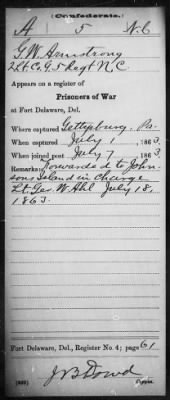 (Confederate.)
A 5 N.C.
G. W. Armstrong
2 Lt. Co. G. 5 Regt N.C.
Appears on a register of
Prisoners of War
at Fort Delaware, Del.
Where captured Gettysburg Pa.
When captured July 1, 1863.
When joined post July 7, 1863.
Remarks: Forwarded to John-
sons Island in charge
Lt Geo. W. Ahl July 18,
1863.
Fort Delaware, Del., Register No. 4; page 61
J B Dowd
Copyist.